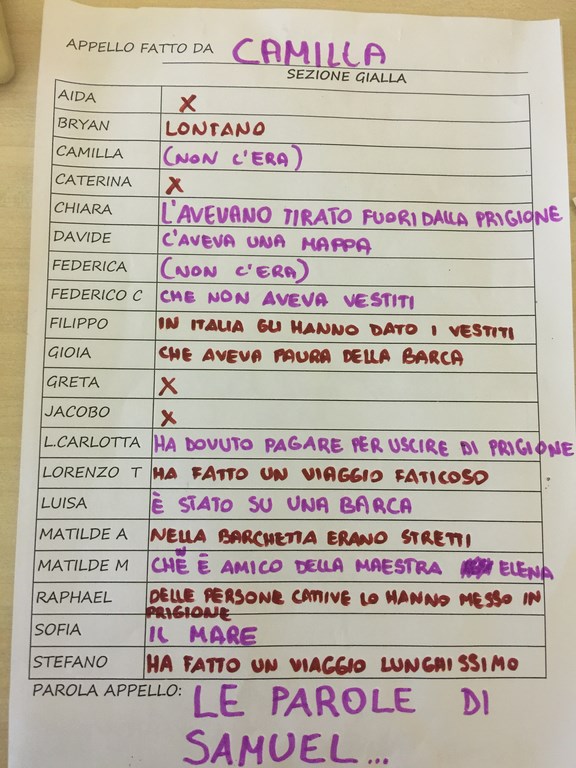 APPELLO FATTO DA CAMILLA
SEZIONE GIALLA
AIDA X
BRYAN LONTANO
CAMILLA (NON C'ERA)
CATERINA X
CHIARA L'AVEVANO TIRATO FUORI DALLA PRIGIONE
DAVIDE C'AVEVA UNA MAPPA
FEDERICA (NON C'ERA)
FEDERICO C CHE NON AVEVA VESTITI
FILIPPO IN ITALIA GLI HANNO DATO I VESTITI
GIOIA CHE AVEVA PAURA DELLA BARCA
GRETA X
JACOBO X
L.CARLOTTA HA DOVUTO PAGARE PER USCIRE DI PRIGIONE
LORENZO T HA FATTO UN VIAGGIO FATICOSO
LUISA È STATO SU UNA BARCA
MATILDE A NELLA BARCHETTA ERANO STRETTI
MATILDE M CHE È AMICO DELLA MAESTRA ELENA
RAPHAEL DELLE PERSONE CATIVE LO HANNO MESSO IN
PRIGIONE
SOFIA IL MARE
STEFANO HA FATTO UN VIAGGIO LUNGHISSIMO
PAROLA APPELLO: LE PAROLE DI
SAMUEL...